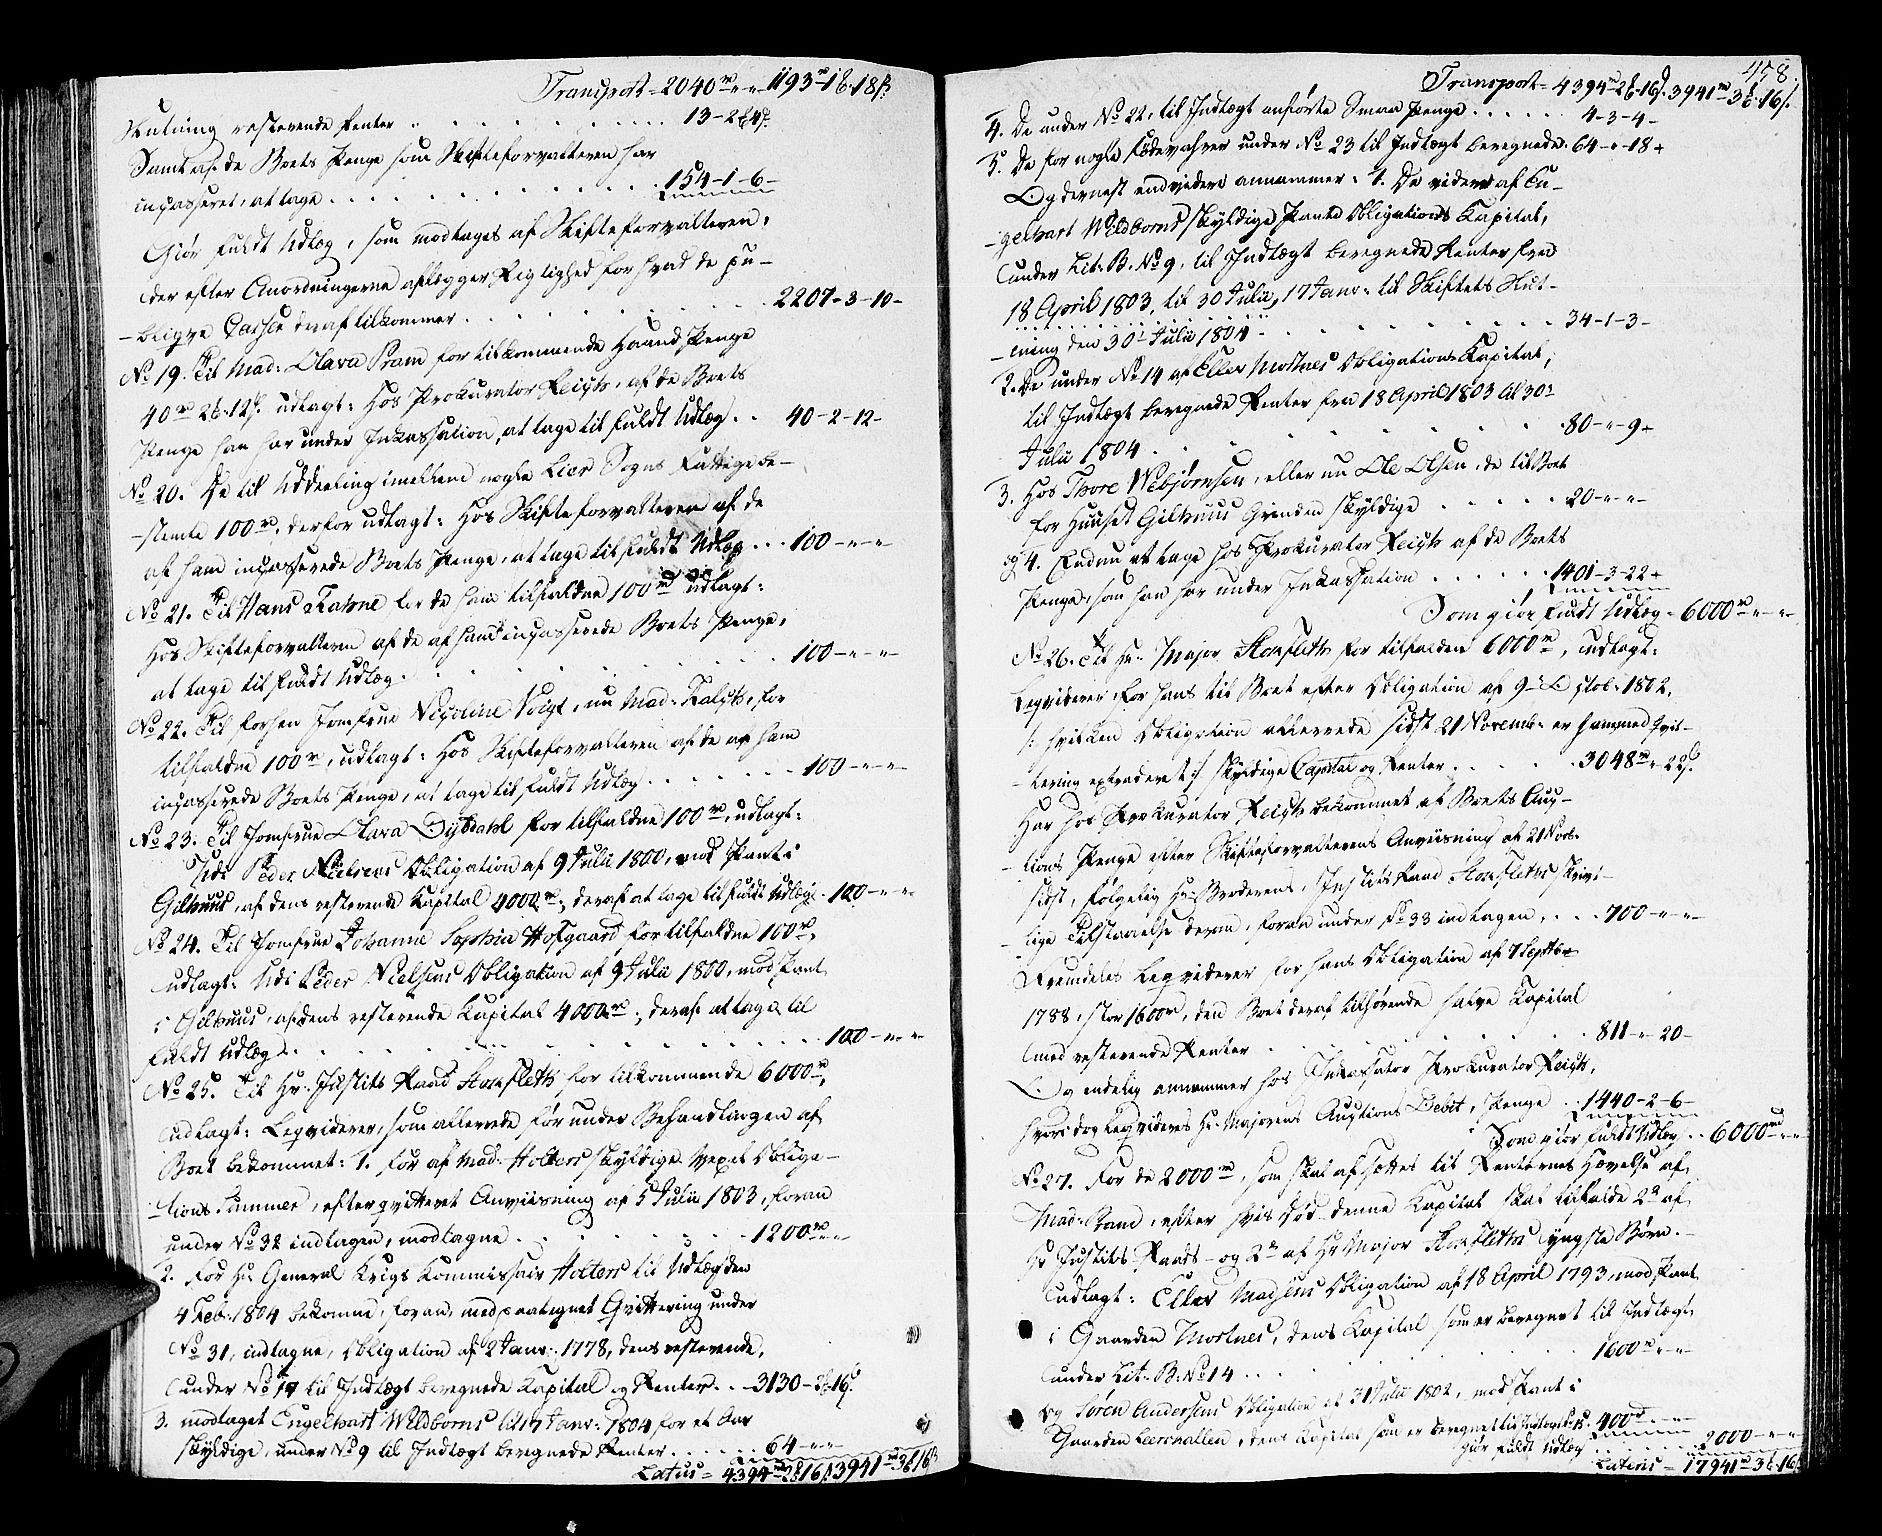 Transport - 2040 rd " " 1193 rd - 1 ß. 18 ß.
Slutning resterende Renter . . . . . 13 - 2 - 4 ß.
Samt af de Boets Penge som Skifteforvalteren har
incasseret, at tage . . . . . 154 - 1 - 6 -
Giør fuldt Udlæg, som modtages af Skifteforvalteren,
der efter Anordningerne aflægger Rigtighed for hvad de pu-
-blique Casser deraf tilkommer . . . . . 2207 - 3 - 10 -
No 19. Til Mad: Olava Pram for tilkommende Haand Penge
40 rd 2 - 12 ß. udlagt: Hos Prokurator Reigh, af de Boets
Penge han har under Inkassation, at tage til fuldt Udlæg . . 40 - 2 - 12 -
No 20. De til Uddeeling imellem nogle Lier Sogns Fattige be-
-stemte 100 rd, derfor udlagt: Hos Skifteforvalteren af de
af ham incasserede Boets Penge, at tage til fuldt Udlæg . . . 100 - " - "
No 21. Til Hans Rahne for de ham tilfaldne 100 rd udlagt:
Hos Skifteforvalteren af de af ham incasserede Boets Penge,
at tage til fuldt Udlæg . . . . . 100 - " - "
No 22. Til forhen Jomfrue Nicoline Voigt, nu Mad: Kalsch, for
tilfaldne 100 rd, udlagt: Hos Skifteforvalteren af de af ham
incasserede Boets Penge, at tage til fuldt Udlæg . . . . . 100 - " - "
No 23. Til Jomfrue Olava Dybdahl for tilfaldne 100 rd, udlagt:
Udi Peder Nielsens Obligation af 9 Julii 1800, mod Pant i
Gilhuus, af dens resterende Kapital 4000 rd, deraf at tage til fuldt Udlæg . 100 - " - "
No 24. Til Jomfrue Johanne Sophia Hofgaard for tilfaldne 100 rd,
udlagt: Udi Peder Nielsens Obligation af 9 Julii 1800, mod Pant
i Gilhuus, af dens resterende Kapital 4000 rd, deraf at tage til
fuldt Udlæg . . . . . 100 - " - "
No 25. Til Hr. Justits Raad Hornfleth for tilkommende 6000 rd,
udlagt: Leqviderer, som allerede før under Behandlingen af
Boet bekommet: 1. for af Mad: Holters skyldige Vexel Obliga-
-tions Summer, efter qvitteret Anviisning af 5 Julii 1803, foran
under No 32 indtagen, modtagne . . . . . 1200 rd " "
2. For Hr General Krigs Kommissair Holters til Udlæg den
4 Feb: 1804 bekomne, foran, med paategnet Qvittering under
No 31, indtagne, Obligation af 2 Janv: 1778, dens resterende,
under No 17 til Indtægt beregnede Kapital og Renter . . . 3130 - 3 - 16 ß.
3. modtaget Engelhart Wildborns til 17 Janv: 1804 for et Aar
skyldige, under No 9 til Indtægt beregnede Renter . . . . . 64 - " - "
Latus = 4394 rd 2 16 ß 3941 rd 3 16 ß
458.
Transport = 4394 rd 2 - 16 ß. 3941 rd 3 - 16 ß.
4. De under No 22, til Indtægt anførte Smaa Penge . . . . . 4 - 3 - 4 -
5. De for nogle Fødevahrer under No 23 til Indtægt beregnede . 64 - " - 18 +
Og dernest endvidere annammer: 1. De videre af En-
-gelhart Wildborns skyldige Pante Obligations Kapital,
under Lit: B. No 9, til Indtægt beregnede Renter fra
18 April 1803, til 30 Julii, 17 Janv: til Skiftets Slut-
-ning den 30 Julii 1804 . . . . . 34 - 1 - 3 -
2. De under No 14 af Eller Mortnes Obligations Kapital,
til Indtægt beregnede Renter fra 18 April 1803 til 30
Julii 1804 . . . . . 80 - " - 9 +
3. Hos Thore Webjørnsen, eller nu Ole Olsen, de til Boet
for Huuset Gilhuus Grinden skyldige . . . . . 20 - " - "
og 4. Endnu at tage hos Prokurator Reigh af de Boets
Penge, som han har under Inkassation . . . . . 1401 - 3 - 22 +
Som giør fuldt Udlæg - 6000 rd " - "
No 26. Til Hr. Major Hornfleth for tilfalden 6000 rd, udlagt:
Leqviderer, for hans til Boet efter Obligation af 9 Octob: 1802,
/: hvilken Obligation allerede sidst 21 Novemb: er ham med Qvit-
-tering extraderet :/ skyldige Capital og Renter . . . . . 3048 rd " 22 ß.
Har hos Prokurator Reigh bekommet af Boets Auc-
-tions Penge efter Skifteforvalterens Anviisning af 21 Nov:
sidst, følgelig Hr. Broderens, Justits Raad Hornfleths skrivt-
-lige Tilstaaelse derom, foran under No 33 indtagen, . . . 700 - " - "
Fremdeles Leqviderer for hans Obligation af 7 Septbr
1788, stor 1600 rd, den Boet deraf tilhørende halve Kapital
med resterende Renter . . . . . 811 - " - 20 -
Og endelig annammer hos Inkassator Prokurator Reigh,
hvori dog Leqvideres Hr. Majorens Auctions Debit, Penge . . 1440 - 2 - 6 -
Som giør fuldt Udlæg . . 6000 rd " "
No 27. For de 2000 rd, som skal afsættes til Renternes Hævelse af
Mad: Pram, efter hvis Død denne Kapital skal tilfalde 2de af
Hr Justits Raads - og 2de af Hr Major Hornfleths yngste Børn. -
Udlagt: Eller Madsens Obligation af 18 April 1793, mod Pant
i Gaarden Mortnes, dens Kapital som er beregnet til Indtægt
under Lit: B. No 14 . . . . . 1600 rd " "
og Søren Andersens Obligation af 31 Julii 1802, mod Pant i
Gaarden Leerhallen, dens Kapital som er beregnet til Indtægt . 400 rd " - "
giør fuldt Udlæg . . . . . 2000 - " - "
Lateris = 17941 rd 3 - 16 ß